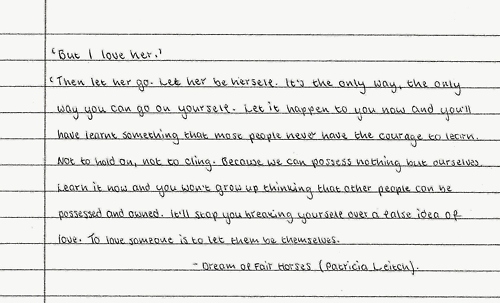 'But I love her.'
'Then let her go. Let her be herself. It's the only way, the only
way you can go on yourself. Let it happen to you now and you'll
have learnt something that most people never have the courage to learn.
Not to hold on, not to cling. Because we can possess nothing but ourselves.
Learn it now and you won't grow up thinking that other people can be
possessed and owned. It'll stop you breaking yourself over a false idea of
love. To love someone is to let them be themselves.
- Dream of Fair Horses (Patricia Leitch).